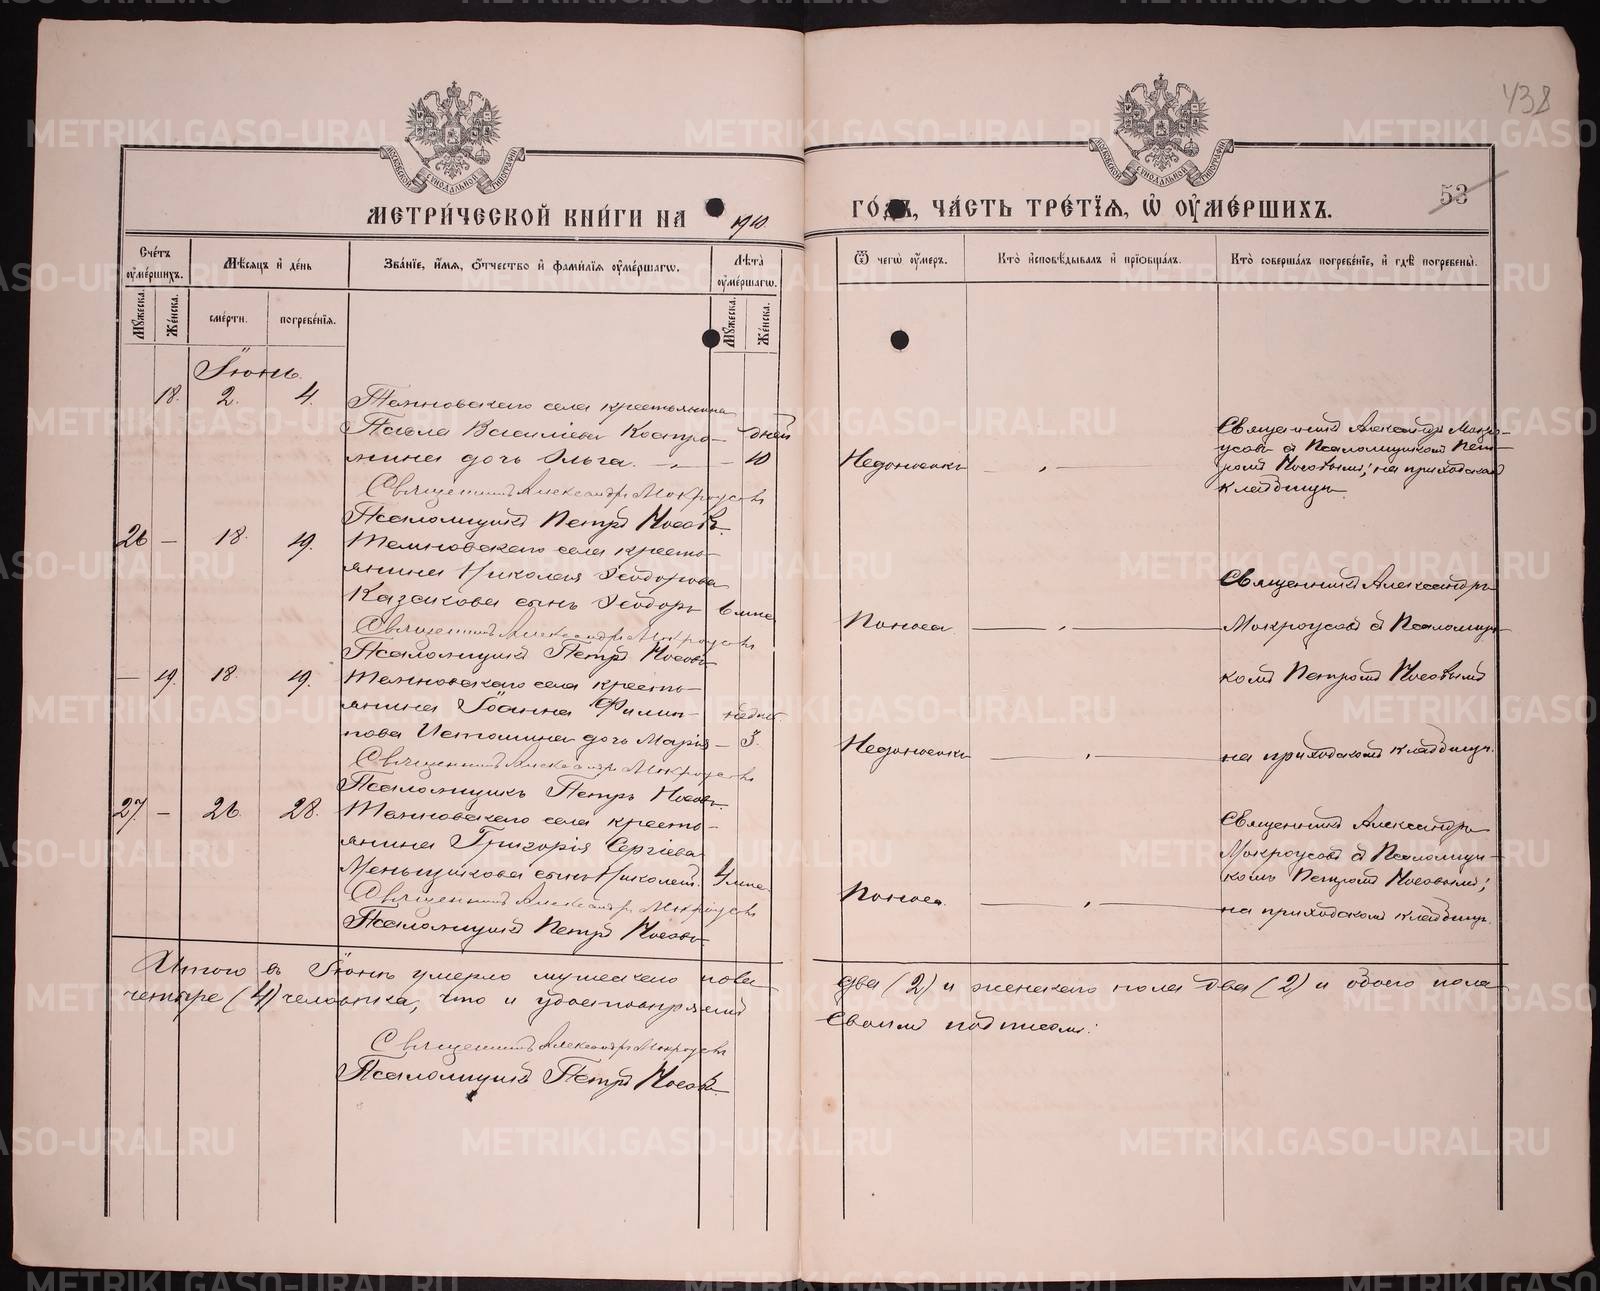 438
53
МОСКОВСКОЙ СѴНОДАЛЬНОЙ ТИПОГРАФІИ
МОСКОВСКОЙ СѴНОДАЛЬНОЙ ТИПОГРАФІИ
МЕТРИ́ЧЕСКОЙ КНИ́ГИ НА 1910
ГО́ДЪ, ЧА́СТЬ ТРЕ́ТІѦ, Ѡ҆ ОУ҆МЕ́РШИХЪ.
Сче́тъ оу҆ме́ршихъ.
Мѣ́сѧцъ и҆ де́нь
Зва́нїе, и҆́мѧ, ѻ҆́тчество и҆ фами́лїѧ оу҆ме́ршагѡ.
Лѣ́та оу҆ме́ршагѡ.
Ѿ чегѡ̀ оу҆́меръ.
Кто̀ и҆сповѣ́дывалъ и҆ прїѡбща́лъ.
Кто̀ соверша́лъ погребе́нїе, и҆ гдѣ̀ погребены̀.
Мꙋ́жеска.
Же́нска.
сме́рти.
погребе́нїѧ.
Мꙋ́жеска.
Же́нска.
Іюнь.
18. 2. 4. Темновскаго села крестьянина
Павла Василіева Костро- дней
мина дочь Ольга. — „ — 10
Недоносокъ — „ —
Священникъ Александръ Мокро-
усовъ съ Псаломщикомъ Пет-
ромъ Носовымъ; на приходскомъ
кладбищѣ.
Священникъ Александръ Мокроусовъ
Псаломщикъ Петръ Носовъ.
26 — 18. 19. Темновскаго села кресть-
янина Николая Ѳеодорова
Казакова сынъ Ѳеодоръ 6 мѣс
Поноса — „ —
Священникъ Александръ
Мокроусовъ съ Псаломщи-
комъ Петромъ Носовымъ
на приходскомъ кладбищѣ.
Священникъ Александръ Мокроусовъ
Псаломщикъ Петръ Носовъ
— 19. 18. 19. Темновскаго села кресть-
янина Іоанна Филип-
пова Истомина дочь Марія — 3.
Недоносокъ — „ —
Священникъ Александръ Мокроусовъ
Псаломщикъ Петръ Носовъ.
27. — 26. 28. Темновскаго села кресть-
янина Григорія Сергіева
Меньщикова сынъ Николай. 4 мѣс
Поноса. — „ —
Священникъ Александръ
Мокроусовъ съ Псаломщи-
комъ Петромъ Носовымъ;
на приходскомъ кладбищѣ.
Священникъ Александръ Мокроусовъ
Псаломщикъ Петръ Носовъ
Итого въ Іюнѣ умерло мужескаго пола два (2) и женскаго пола два (2) и обоего пола
четыре (4) человѣка, что и удостовѣряемъ своимъ подписомъ:
Священникъ Александръ Мокроусовъ
Псаломщикъ Петръ Носовъ.
METRIKI.GASO-URAL.RU